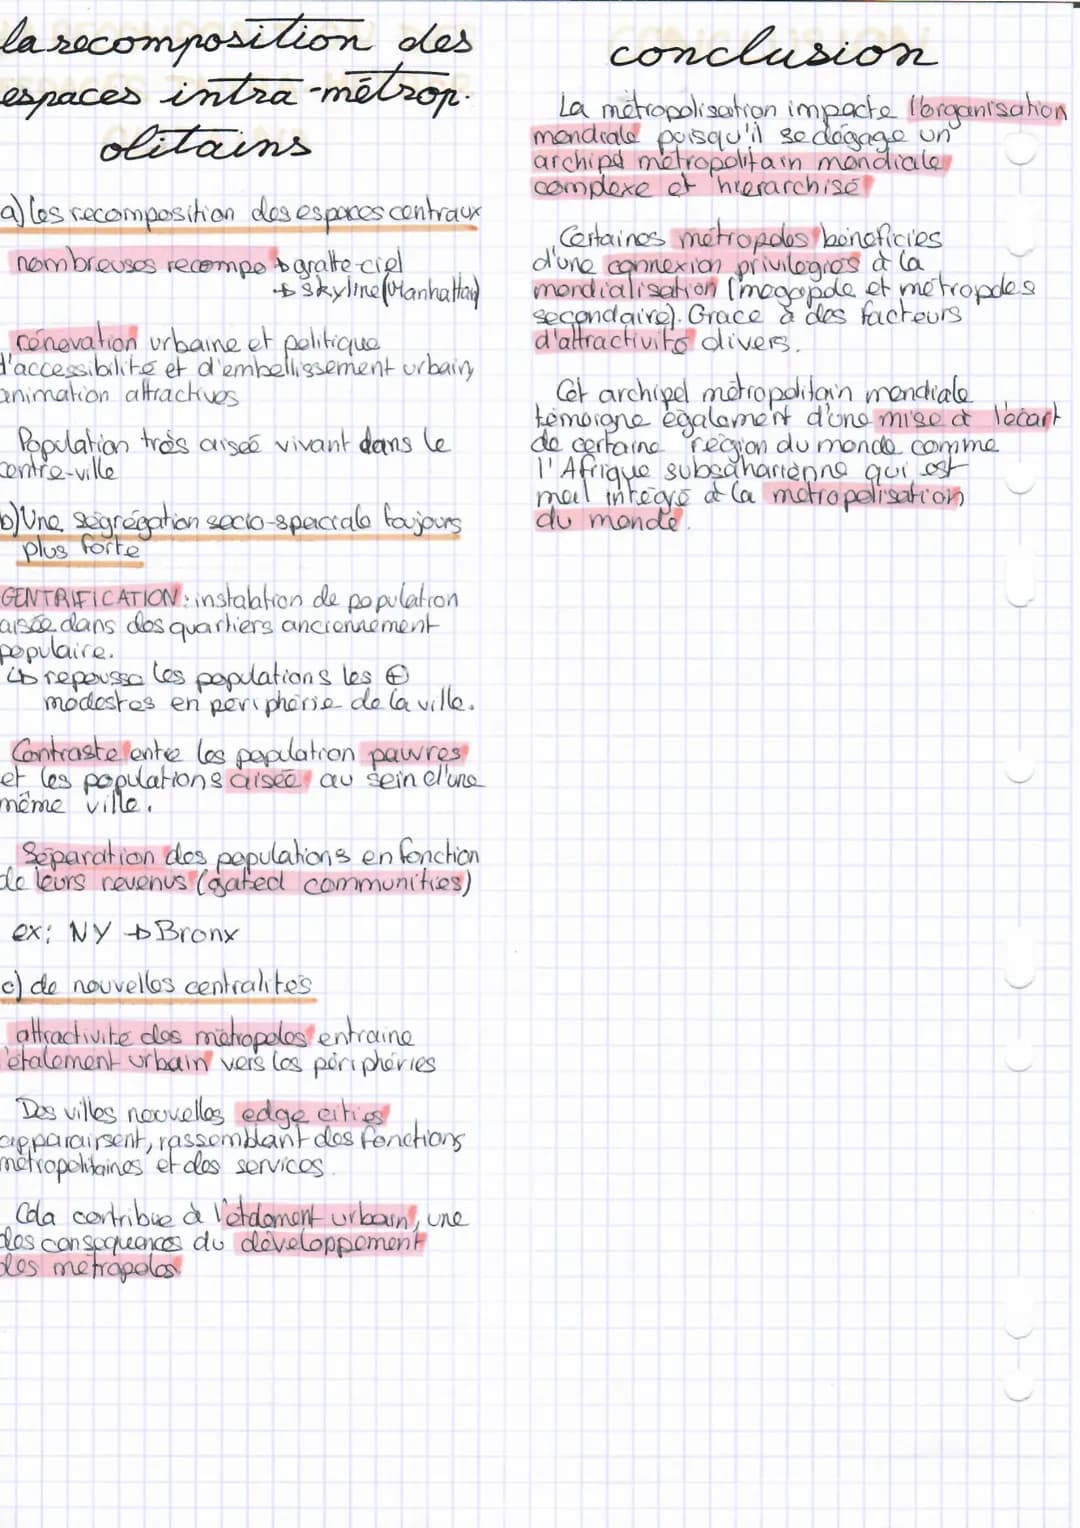 la recomposition des
espaces intra-métrop.
olitains
a) les recomposition des espaces centraux
nombreuses recompo → gratte-ciel
→ skyline (Manhattan)
rénovation urbaine et politique
d'accessibilité et d'embellissement urbain,
animation attractives
Population très aisée vivant dans le
centre-ville
b) Une ségrégation socio-spaciale toujours
plus forte
GENTRIFICATION: instalation de population
aisée dans des quartiers anciennement
populaire.
↳ repousse les populations les ⊕
modestes en périphérie de la ville.
Contraste entre les population pauvres
et les populations aisée au sein d'une
même ville.
Séparation des populations en fonction
de leurs revenus (gated communities)
ex: NY → Bronx
c) de nouvelles centralités
attractivité des métropoles entraine
l'étalement urbain vers les périphéries
Des villes nouvelles edge cities
apparaissent, rassemblant des fonctions
métropolitaines et des services.
Cela contribue à l'étalement urbain, une
des conséquences du développement
des métropoles
conclusion
La métropolisation impacte l'organisation
mondiale puisqu'il se dégage un
archipel métropolitain mondiale,
complexe et hiérarchisé
Certaines métropoles bénéficies
d'une connexion privilégiés à la
mondialisation (mégapole et métropoles
secondaire). Grace à des facteurs
d'attractivité divers.
Cet archipel métropolitain mondiale
témoigne également d'une mise à l'écart
de certaine région du monde comme
l'Afrique subsaharienne qui est
mal intégré à la métropolisation
du monde.